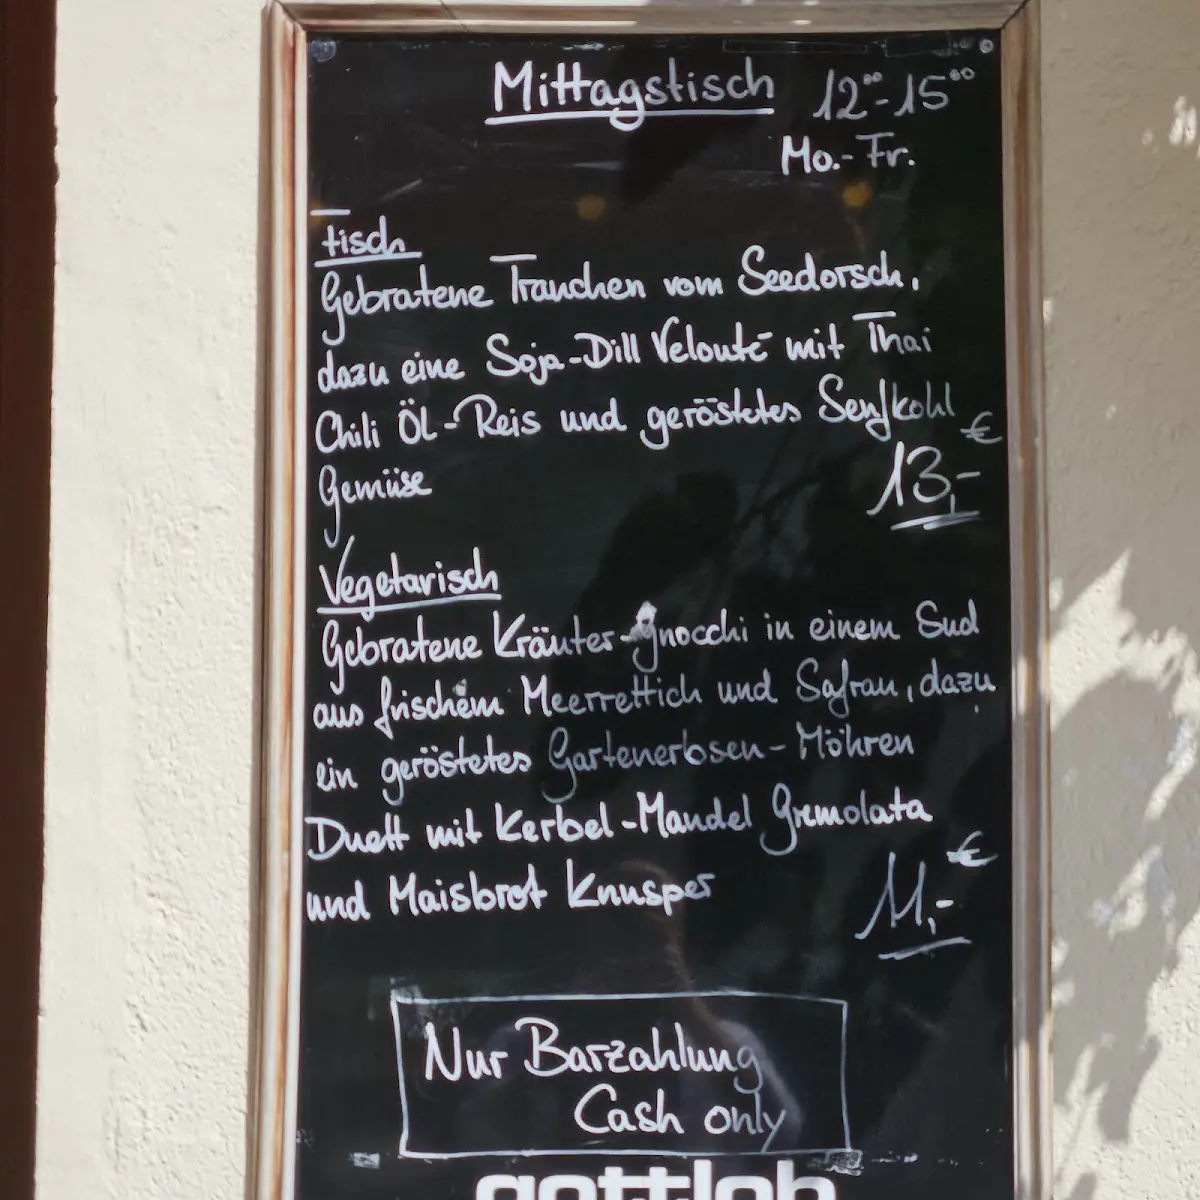 Mittagstisch 12⁰⁰-15⁰⁰
Mo.-Fr.
Fisch
Gebratene Tranchen vom Seedorsch,
dazu eine Soja-Dill Velouté mit Thai
Chili Öl-Reis und geröstetes Senfkohl
Gemüse
13,- €
Vegetarisch
Gebratene Kräuter-Gnocchi in einem Sud
aus frischem Meerrettich und Safran, dazu
ein geröstetes Gartenerbsen-Möhren
Duett mit Kerbel-Mandel Gremolata
und Maisbrot Knusper
11,- €
Nur Barzahlung
Cash only
gottlob